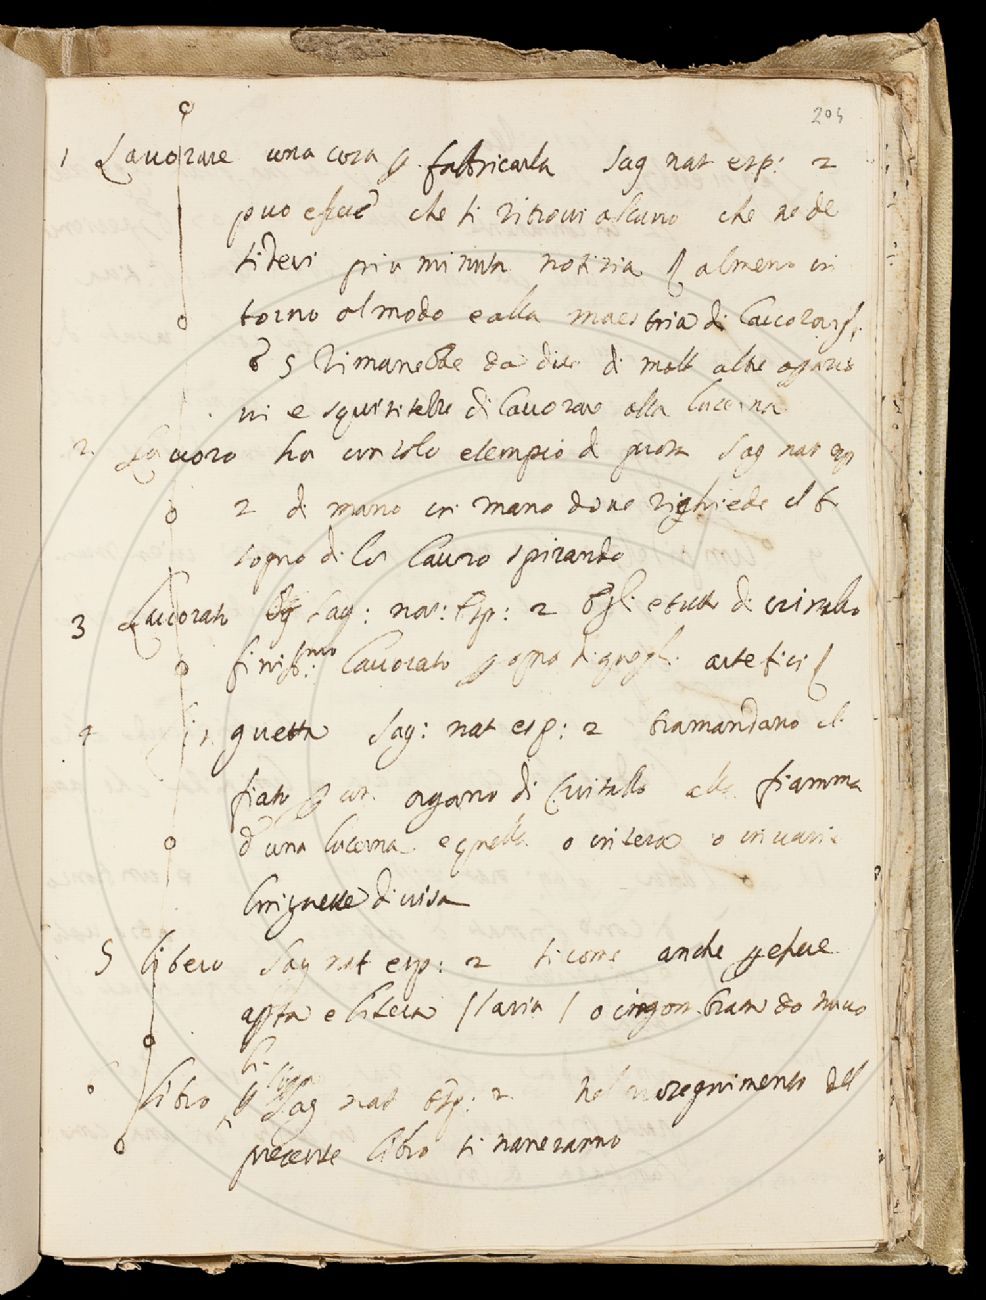 205
1 Lauorare una cosa p fabricarla Sag nat esp: 2
puo essere che si ritroui alcuno che ne de
sideri piu minuta notizia almeno in
torno al modo e alla maestria di lauorarsi
5 Rimanebbe da dire di molt altre
e squisitezze di lauorare alla lucerna
2. Lauoro ha un solo esempio di Sag nat esp
2 di mano in mano doue richiede il bi
sogno di lor lauoro spirando
3 Lauorato Sag: nat: Esp: 2 e tutto di cristallo
finiss.mo lauorato p opra artefici
4 Linguetta Sag: nat esp: 2 tramandano il
fiato p un organo di Cristallo alla fiamma
d'una lucerna e quella o intera o in uarie
linguette diuisa
5 libero Sag nat esp: 2 sicome anche p essere
aperta e libera / l'aria / o ingombrata da nuuo
libro p Sag nat Esp: 2. nel proseguimento del
presente libro si